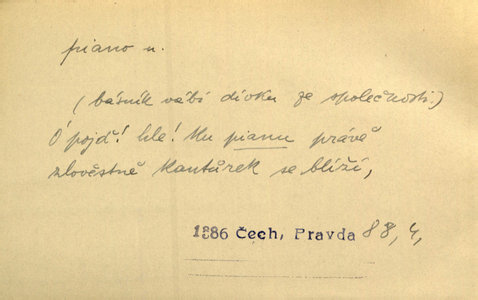 piano n.
(básník vábí dívku ze společnosti.)
Ó pojď! hle! Ku pianu právě
zlověstně kantůrek se blíží,
1886 Čech, Pravda 88, 4,